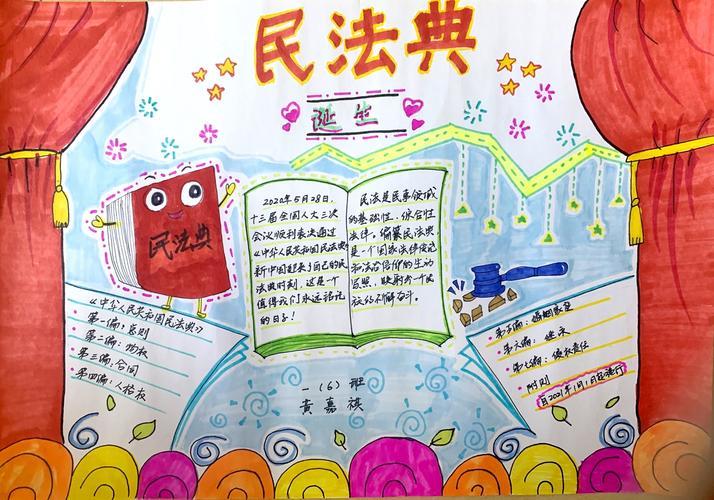 民法典
诞生
民法典
2020年5月28日,
十三届全国人大三次
会议顺利表决通过
《中华人民共和国民法典》
新中国迎来了自己的民
法典时刻,这是一个
值得我们永远铭记
的日子!
民法是民事领域
的基础性、综合性
法律。编纂民法典,
是一个国家法律规范
和法治信仰的生动
写照,映射着一个民
族的不懈奋斗。
《中华人民共和国民法典》
第一编:总则
第二编:物权
第三编:合同
第四编:人格权
第五编:婚姻家庭
第六编:继承
第七编:侵权责任
附则
自2021年1月1日起施行
一(6)班
黄嘉祺